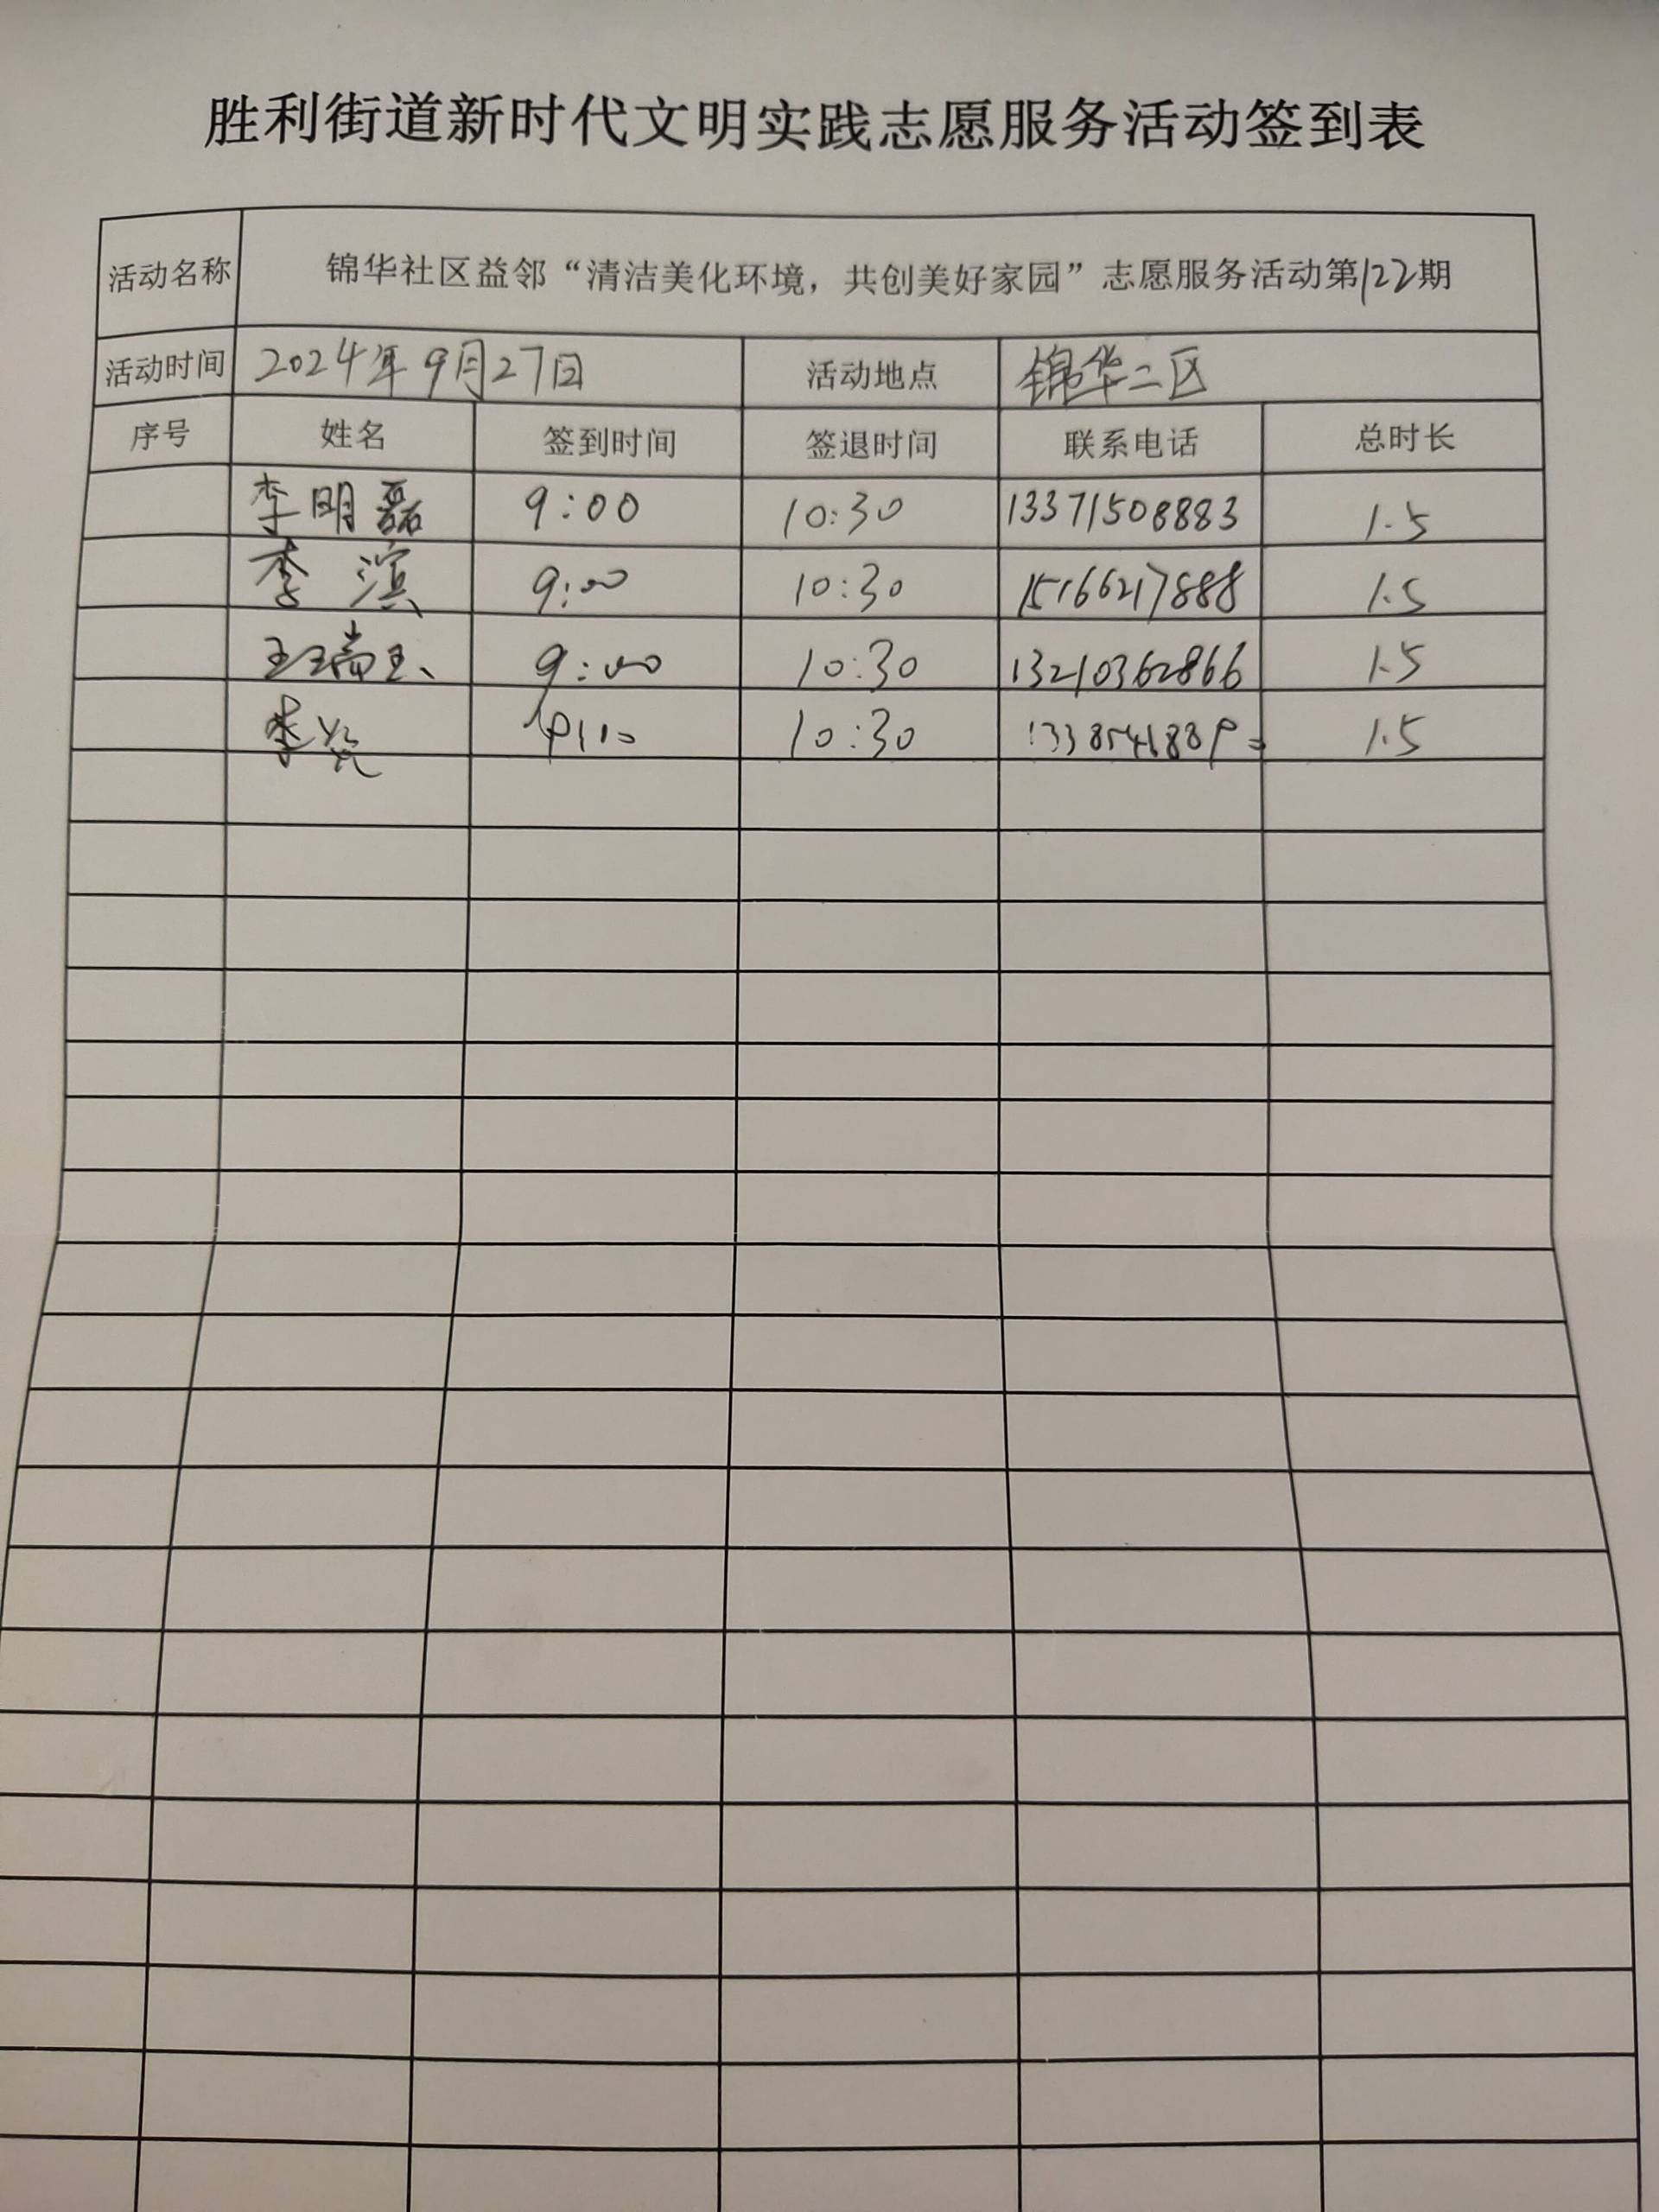 胜利街道新时代文明实践志愿服务活动签到表
活动名称 锦华社区益邻“清洁美化环境，共创美好家园”志愿服务活动第122期
活动时间 2024年9月27日 活动地点 锦华二区
序号 姓名 签到时间 签退时间 联系电话 总时长
李明磊 9:00 10:30 13371508883 1.5
李滨 9:00 10:30 15166217888 1.5
王瑞玉 9:00 10:30 13210362866 1.5
李 10:30 1.5